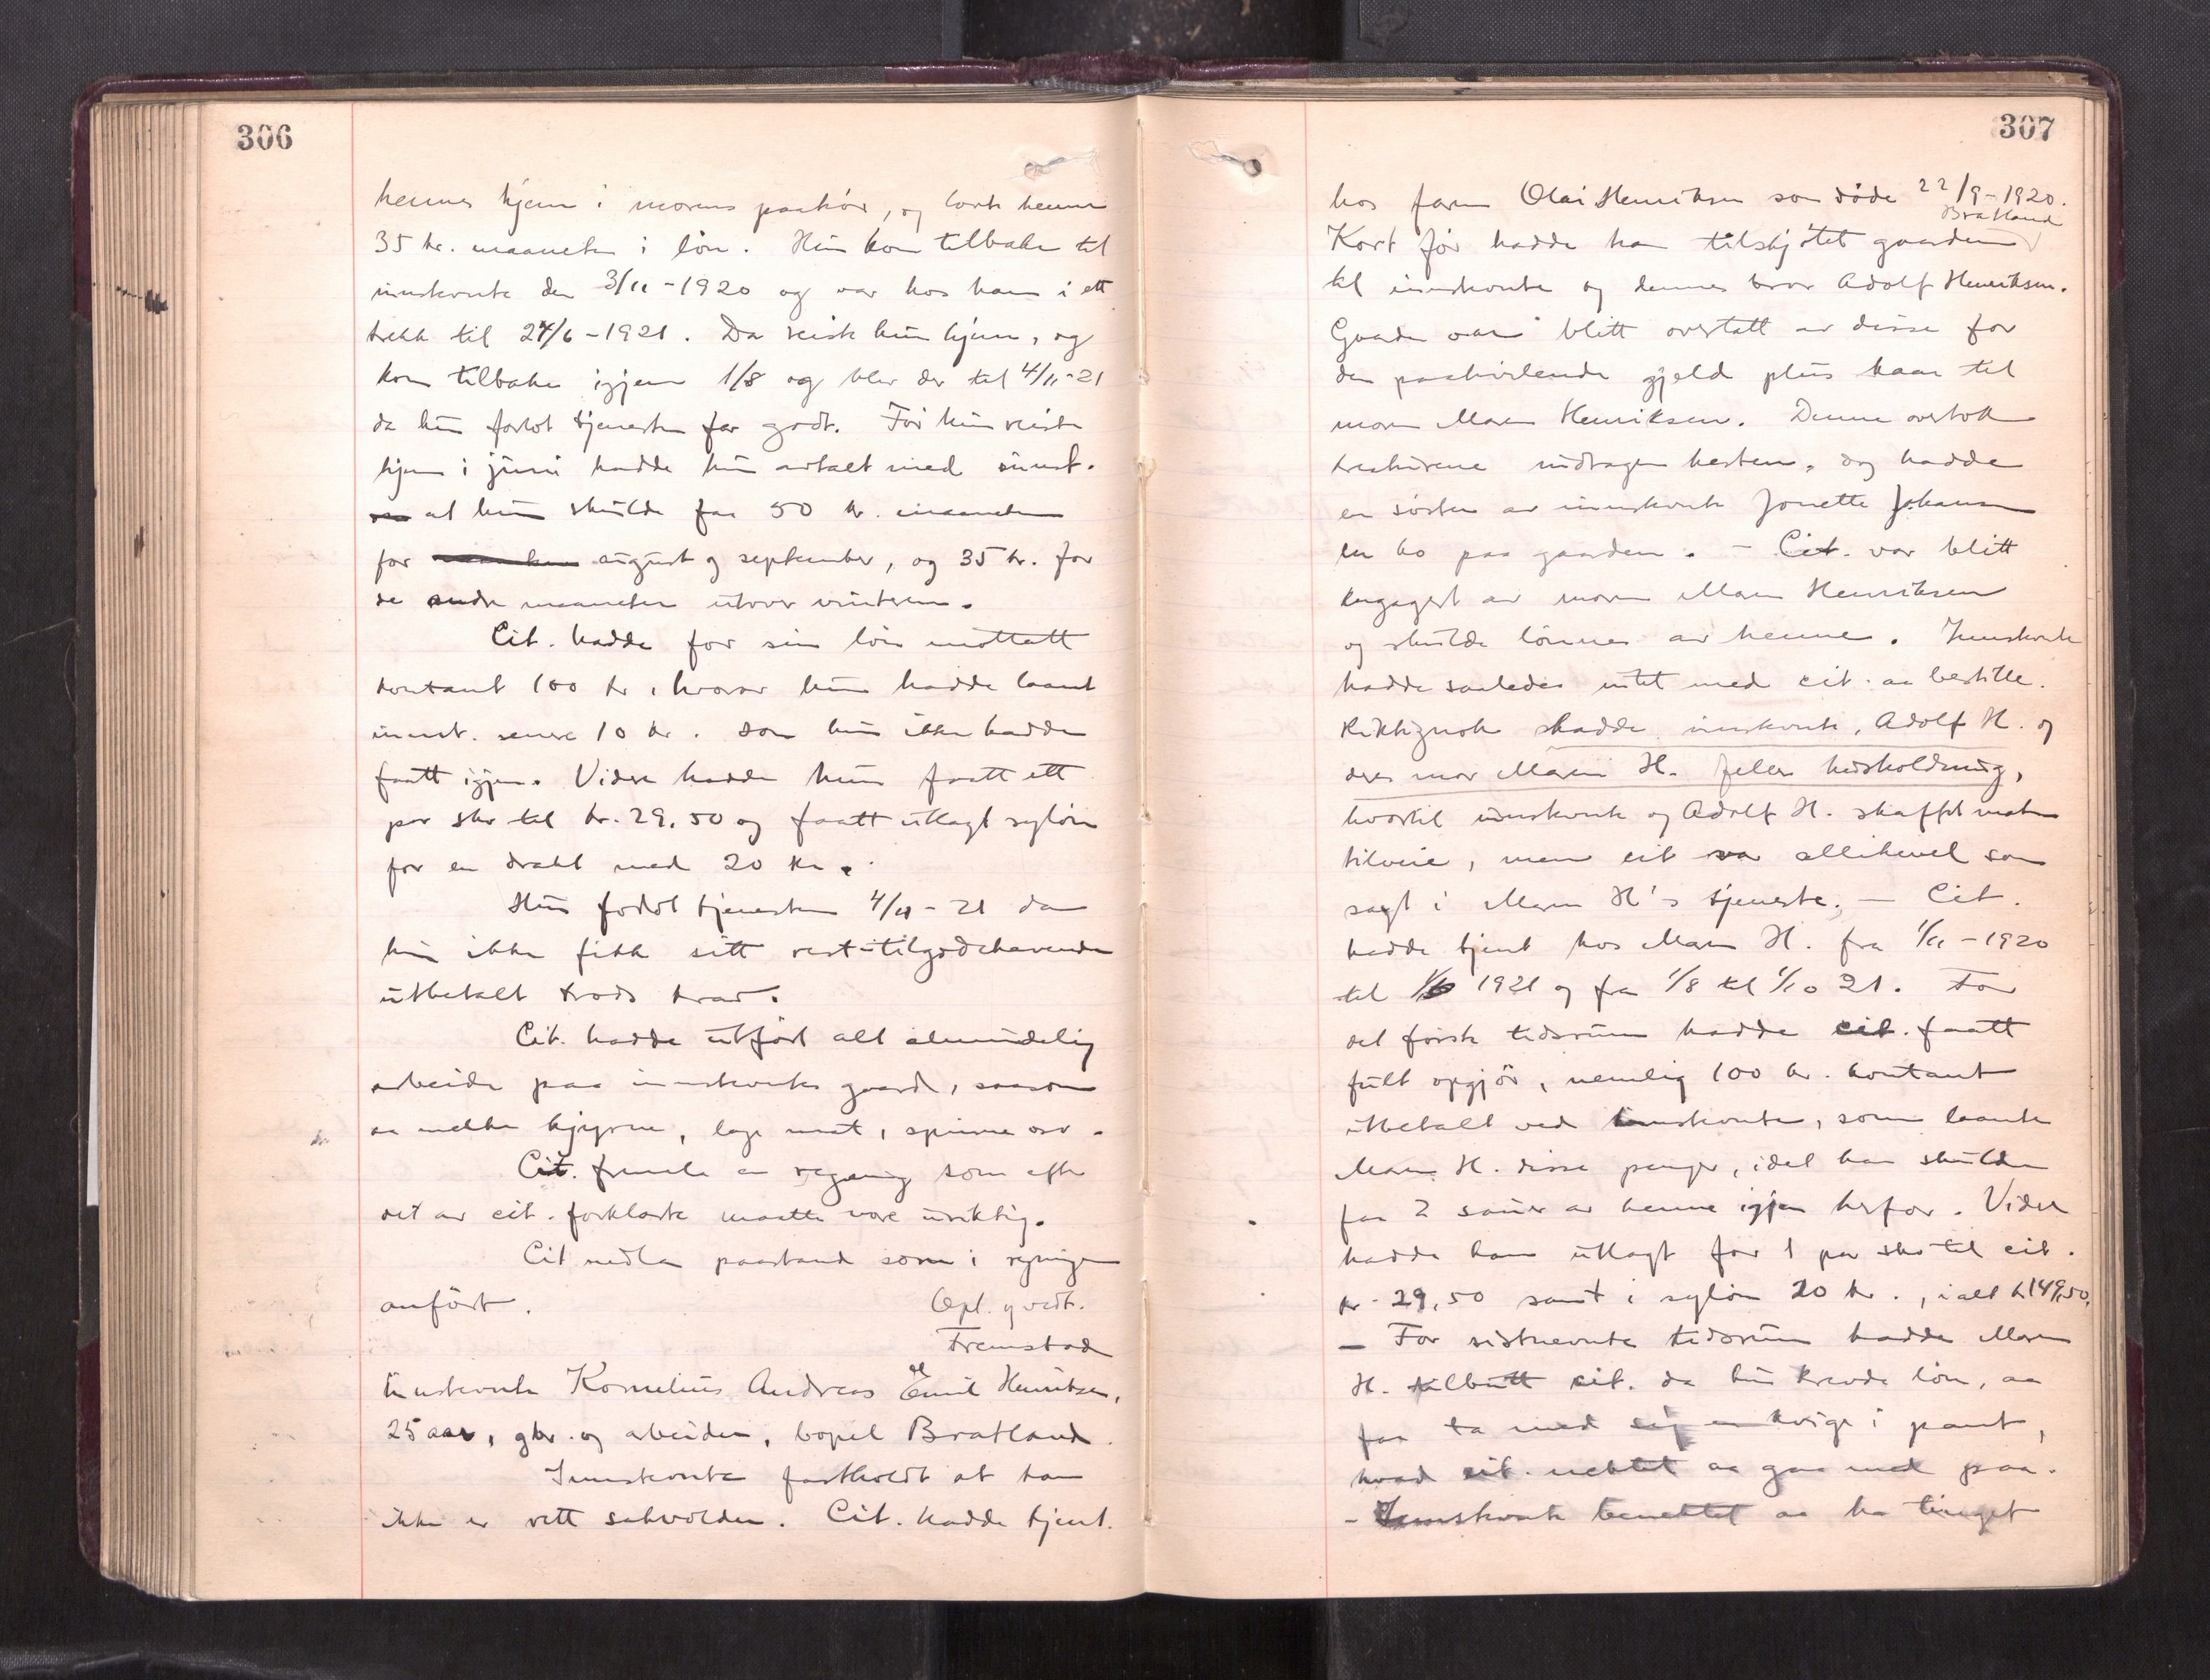 306
hennes hjem i morens paahør, og lovte henne
35 kr. maaneten i løn. Hun kom tilbake til
innstevnte den 3/11-1920 og var hos ham i ett
trekk til 24/6-1921. Da reiste hun hjem, og
kom tilbake igjen 1/8 og blev der til 4/11-21
da hun forlot tjenesten for godt. Før hun reiste
hjem i juni hadde hun avtalt med innst.
at hun skulde faa 50 kr. maaneten
for august og september, og 35 kr. for
de andre maaneter utover vinteren.
Cit. hadde for sin løn mottatt
kontant 100 kr, hvorav hun hadde laant
innst. senere 10 kr. som hun ikke hadde
faatt igjen. Videre hadde hun faatt ett
par sko til kr. 29,50 og faatt utlagt syløn
for en drakt med 20 kr.
Hun forlot tjenesten 4/11-21 da
hun ikke fikk sitt rest-tilgodehavende
utbetalt trods krav.
Cit. hadde utført alt almindelig
arbeide paa innstevntes gaard, saasom
aa melke kjyrne, lage mat, spinne osv.
Cit. fremla en regning som efter
det av cit. forklarte maatte være uriktig.
Cit. nedla paastand som i regningen
anført. Opl. og vedt.
Fremstod
innstevnte Kornelius Andreas Emil Henriksen,
25 aar, gbr. og arbeider, bopel Bratland.
Innstevnte fastholdt at han
ikke er rett saksvolder. Cit. hadde tjent
307
hos faren Olai Henriksen som døde 22/9-1920.
Bratland
Kort før hadde han tilskjøtet gaarden
til innstevnte og dennes bror Adolf Henriksen.
Gaarden var blitt overtatt av disse for
den paahvilende gjeld plus kaar til
moren Maren Henriksen. Denne overtok
kreaturene undtagen hesten, og hadde
en søster av innstevnte Jonette Johansen
bo paa gaarden. - Cit. var blitt
engagert av moren Maren Henriksen
og skulde lønnes av henne. Innstevnte
hadde saaledes intet med cit. aa bestille.
Riktignok hadde innstevnte, Adolf H. og
deres mor Maren H. felles husholdning,
hvortil innstevnte og Adolf H. skaffet maten
tilveie, men cit var allikevel som
sagt i Maren H's tjeneste. - Cit.
hadde tjent hos Maren H. fra 1/11-1920
til 1/6 1921 og fra 1/8 til 1/10 21. For
det første tidsrum hadde cit. faatt
fult opgjør, nemlig 100 kr. kontant
utbetalt ved innstevnte, som laante
Maren H. disse penger, idet han skulde
faa 2 sauer av henne igjen herfor. Videre
hadde han utlagt for 1 par sko til cit.
kr. 29,50 samt i syløn 20 kr., ialt kr 149,50.
- For sistnevnte tidsrum hadde Maren
H. tilbutt cit. da hun krevde løn, aa
faa ta med sig en kvige i pant,
hvad cit. nektet aa gaa med paa.
- Innstevnte benektet aa ha tinget